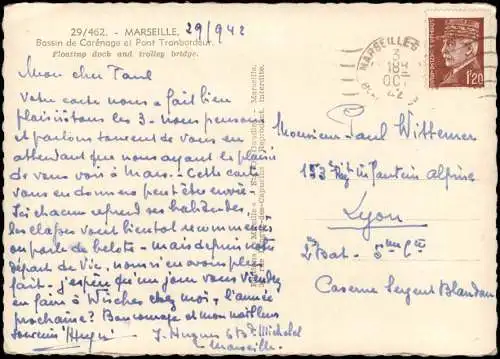 29/462. - MARSEILLE,
29/9 42
Bassin de Carénage et Pont Tranbordeur.
Floating dock and trolley bridge.
Mon cher Paul
Votre carte nous a fait bien
plaisir tous les 3 - nous pensons
et parlons souvent de vous en
attendant que nous ayant le plaisir
de vous voir à Mars - Cette carte
vous en donnera peut être envie -
Ici chacun reprend ses habitudes.
les classes vont bientôt recommencer
on parle de belote - mais depuis votre
départ de Vic, nous n'en avons plus
fait - J'espère qu'un jour vous viendrez
en faire à chez moi, l'année
prochaine? Bon courage et mon meilleur
souvenir Hugues
J. Hugues 6 Bd Michelet
Marseille -
MARSEILLE
18 H
OCT
42
1F20
Monsieur Paul Wittemer
153e Rgt Inf Alpine
Lyon
2e Bat - 5eme Cie
Caserne Sergent Blandan